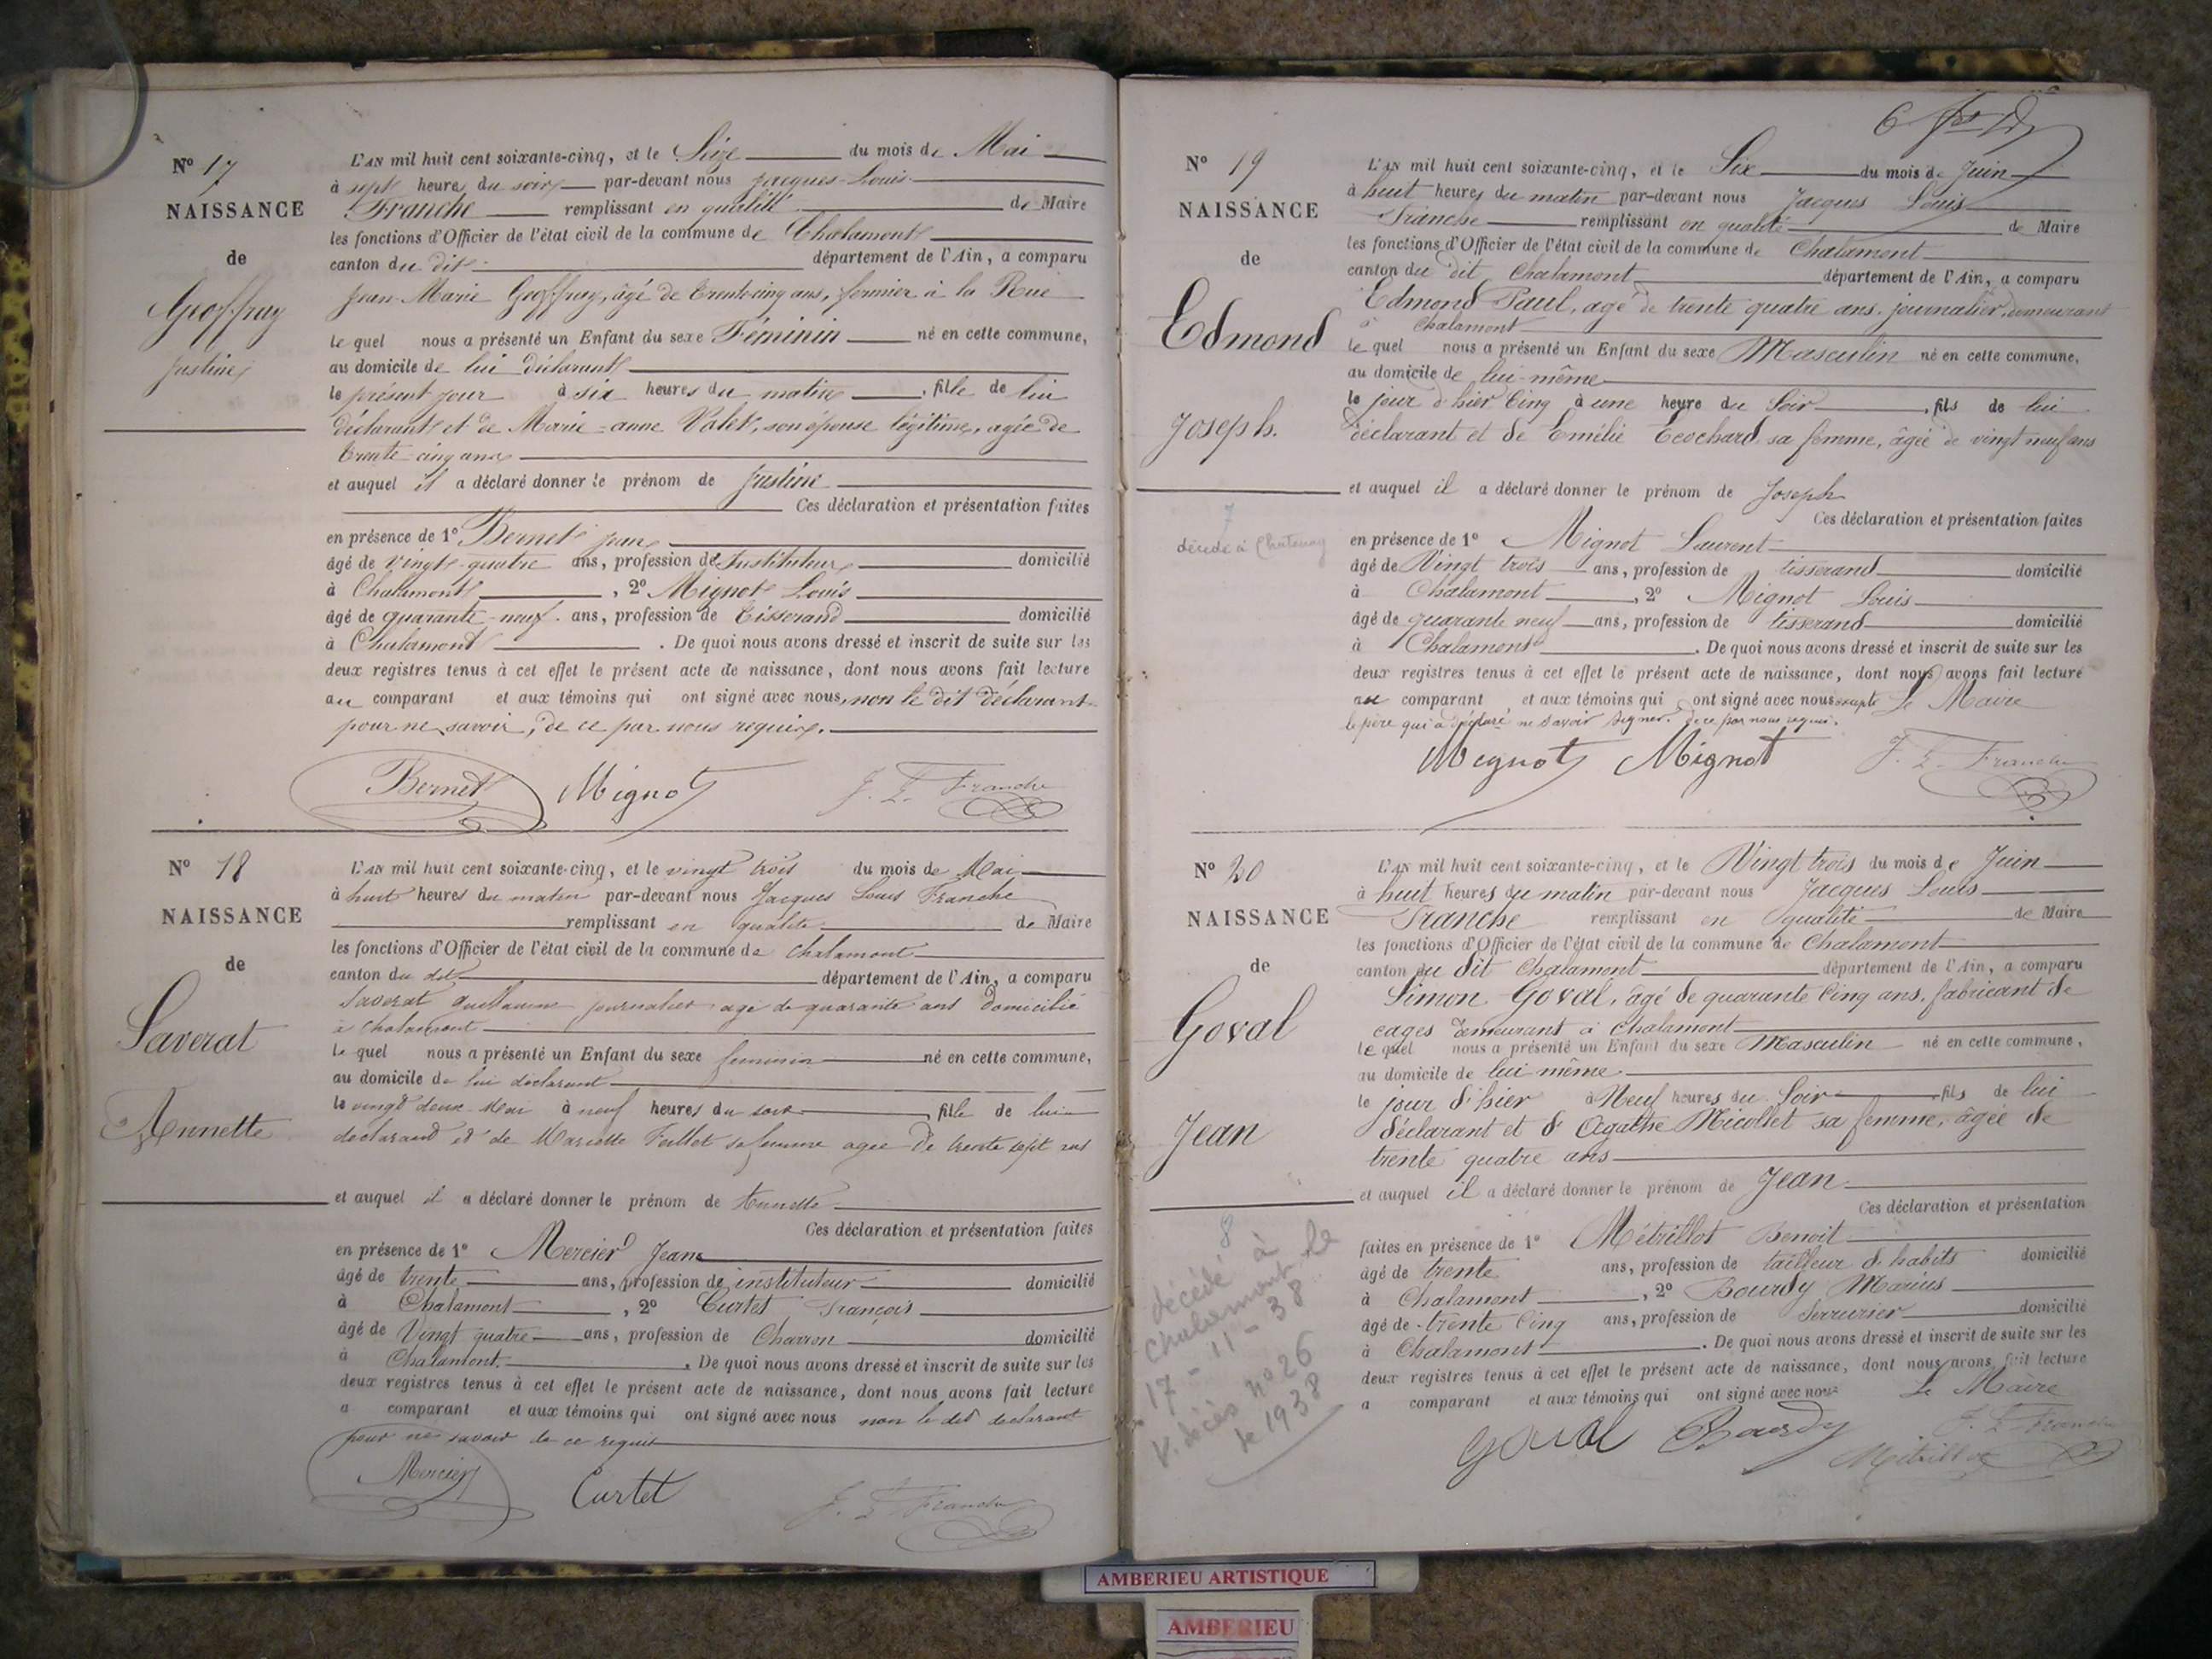 N° 17
NAISSANCE
de
Geoffray
Justine
L'AN mil huit cent soixante-cinq, et le Seize du mois de Mai
à sept heures du soir par-devant nous Jacques-Louis
Franche remplissant en qualité de Maire
les fonctions d'Officier de l'état civil de la commune de Chalamont
canton du dit département de l'Ain, a comparu
Jean-Marie Geoffray, âgé de trente-cinq ans, fermier à la Rue
le quel nous a présenté un Enfant du sexe Féminin né en cette commune,
au domicile de lui déclarant
le présent jour à six heures du matin, fille de lui
déclarant et de Marie-anne Valet, son épouse légitime, agée de
trente-cinq ans
et auquel il a déclaré donner le prénom de Justine
Ces déclaration et présentation faites
en présence de 1° Bernet Jean
âgé de vingt-quatre ans, profession de Instituteur domicilié
à Chalamont, 2° Mignot Louis
âgé de quarante-neuf ans, profession de tisserand domicilié
à Chalamont. De quoi nous avons dressé et inscrit de suite sur les
deux registres tenus à cet effet le présent acte de naissance, dont nous avons fait lecture
au comparant et aux témoins qui ont signé avec nous, non le dit déclarant
pour ne savoir, de ce par nous requis.
Bernet Mignot J. L. Franche
N° 18
NAISSANCE
de
Saverat
Annette
L'AN mil huit cent soixante-cinq, et le vingt trois du mois de Mai
à huit heures du matin par-devant nous Jacques Louis Franche
remplissant en qualité de Maire
les fonctions d'Officier de l'état civil de la commune de Chalamont
canton du dit département de l'Ain, a comparu
Saverat Guillaume journalier agé de quarante ans domicilié
à Chalamont
le quel nous a présenté un Enfant du sexe feminin né en cette commune,
au domicile de lui déclarant
le vingt deux Mai à neuf heures du soir, fille de lui
declarand et de Mariette Feillet sa femme agée de trente sept ans
et auquel il a déclaré donner le prénom de Annette
Ces déclaration et présentation faites
en présence de 1° Mercier Jean
âgé de trente ans, profession de instituteur domicilié
à Chalamont, 2° Curtet François
âgé de Vingt quatre ans, profession de Charron domicilié
à Chalamont. De quoi nous avons dressé et inscrit de suite sur les
deux registres tenus à cet effet le présent acte de naissance, dont nous avons fait lecture
a comparant et aux témoins qui ont signé avec nous non le dit declarant
pour ne savoir de ce requis
Mercier Curtet J. L. Franche
6
N° 19
NAISSANCE
de
Edmond
Joseph.
7
décédé à Chatenay
L'AN mil huit cent soixante-cinq, et le Six du mois de Juin
à huit heures du matin par-devant nous Jacques Louis
Franche remplissant en qualité de Maire
les fonctions d'Officier de l'état civil de la commune de Chalamont
canton du dit Chalamont département de l'Ain, a comparu
Edmond Paul, agé de trente quatre ans, journalier, demeurant
à Chalamont
le quel nous a présenté un Enfant du sexe Masculin né en cette commune,
au domicile de lui-même
le jour d'hier Cinq à une heure du Soir, fils de lui
déclarant et de Emélie Teochard sa femme, âgée de vingt neuf ans
et auquel il a déclaré donner le prénom de Joseph
Ces déclaration et présentation faites
en présence de 1° Mignot Laurent
âgé de Vingt trois ans, profession de tisserand domicilié
à Chalamont, 2° Mignot Louis
âgé de quarante neuf ans, profession de tisserand domicilié
à Chalamont. De quoi nous avons dressé et inscrit de suite sur les
deux registres tenus à cet effet le présent acte de naissance, dont nous avons fait lecture
au comparant et aux témoins qui ont signé avec nous excepté Le Maire
le père qui a déclaré ne savoir signer. de ce par nous requis.
Mignot Mignot J. L. Franche
N° 20
NAISSANCE
de
Goval
Jean
8
décédé à
Chalamont le
17 - 11 - 38
V. décès n° 26
de 1938
L'AN mil huit cent soixante-cinq, et le Vingt trois du mois de Juin
à huit heures du matin par-devant nous Jacques Louis
Franche remplissant en qualité de Maire
les fonctions d'Officier de l'état civil de la commune de Chalamont
canton du dit Chalamont département de l'Ain, a comparu
Simon Goval, âgé de quarante Cinq ans, fabricant de
cages demeurant à Chalamont
le quel nous a présenté un Enfant du sexe Masculin né en cette commune,
au domicile de lui même
le jour d'hier à Neuf heures du Soir, fils de lui
déclarant et d'Agathe Nicollet sa femme, âgée de
trente quatre ans
et auquel il a déclaré donner le prénom de Jean
Ces déclaration et présentation
faites en présence de 1° Métrillot Benoit
âgé de trente ans, profession de tailleur d'habits domicilié
à Chalamont, 2° Bourdy Marius
âgé de trente Cinq ans, profession de Serrurier domicilié
à Chalamont. De quoi nous avons dressé et inscrit de suite sur les
deux registres tenus à cet effet le présent acte de naissance, dont nous avons fait lecture
a comparant et aux témoins qui ont signé avec nous Le Maire
Goval Bourdy Métrillot J. L. Franche
AMBERIEU ARTISTIQUE
AMBERIEU